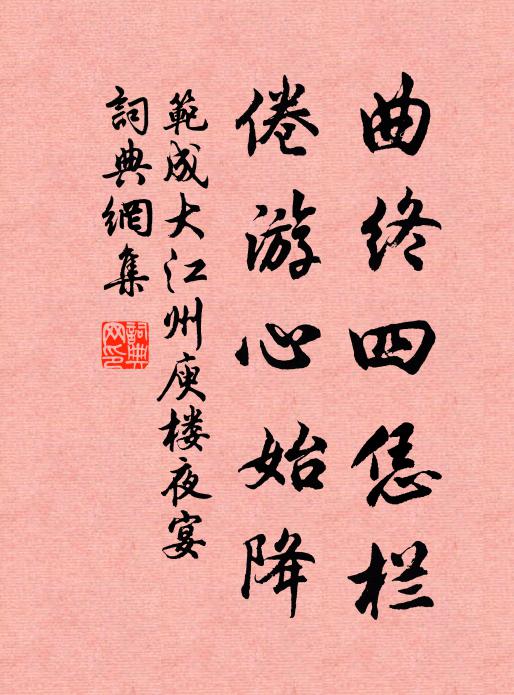 曲终四恁栏
倦游心始降
範成大江州庾楼夜宴
詞典網集
詞典网印